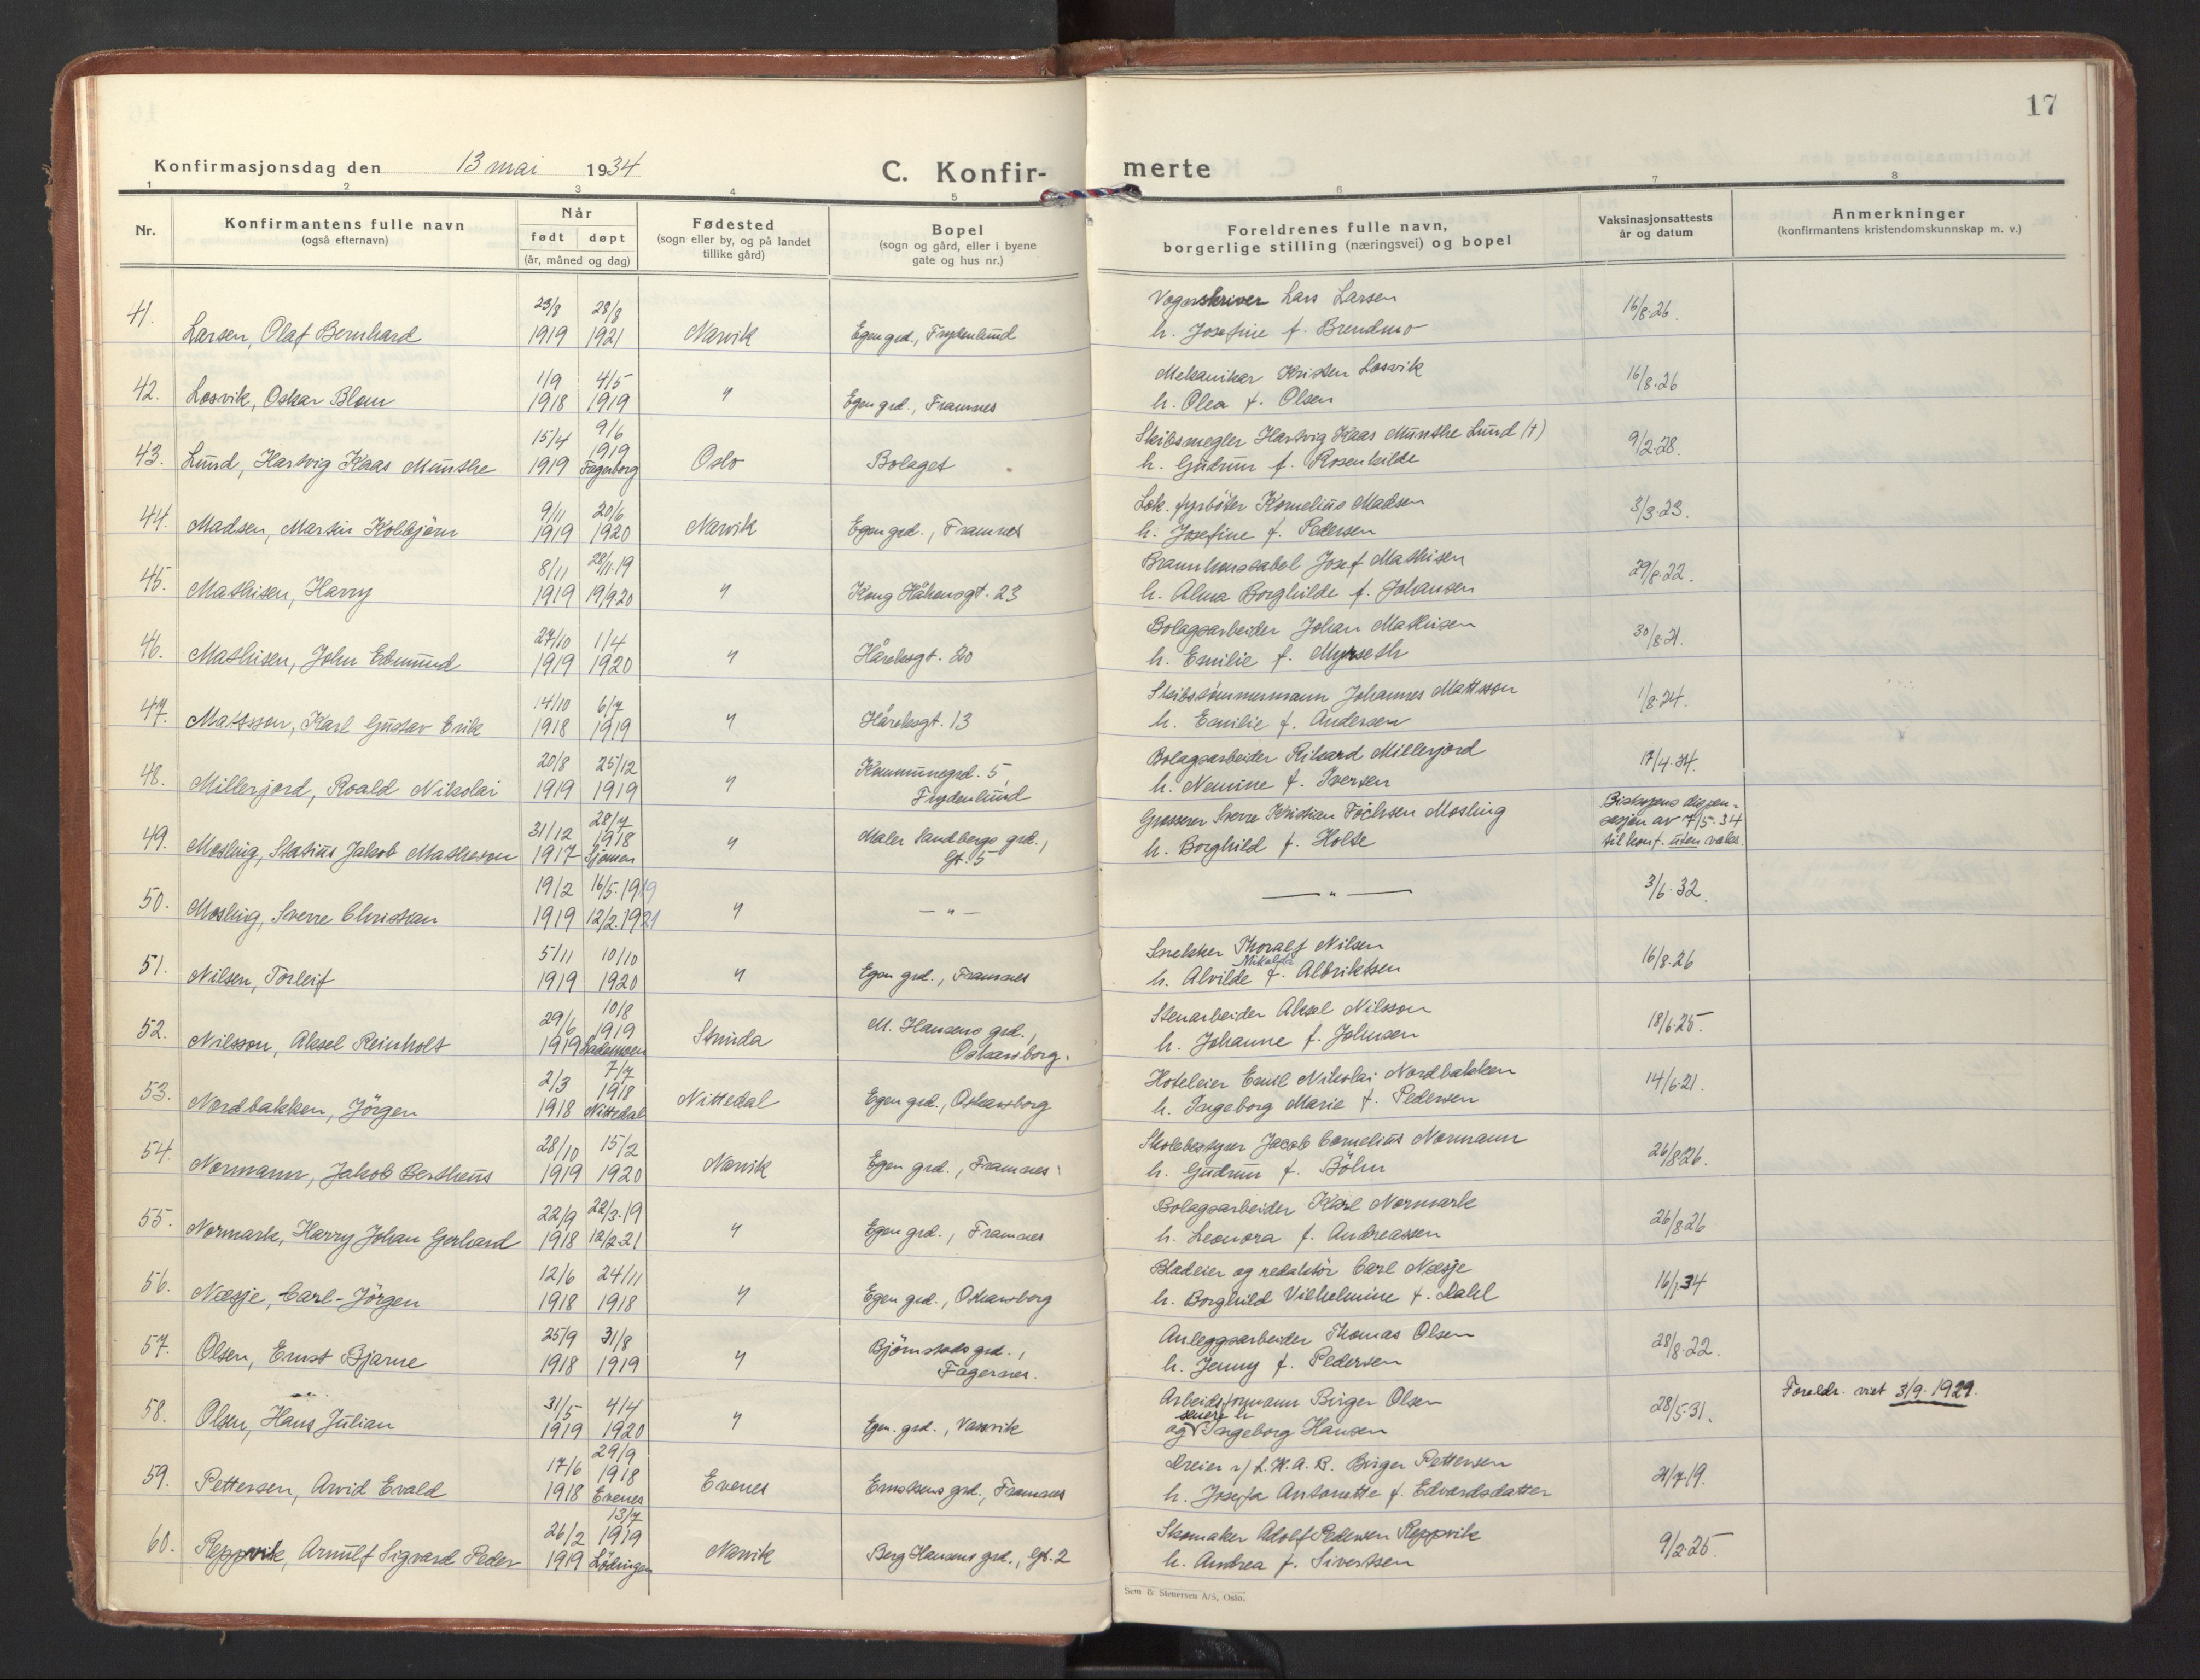 17
Konfirmasjonsdag den 13 mai 1934
C. Konfir- merte
1 2 3 4 5 6 7 8
Nr.
Konfirmantens fulle navn
(også efternavn)
Når
født døpt
(år, måned og dag)
Fødested
(sogn eller by, og på landet
tillike gård)
Bopel
(sogn og gård, eller i byene
gate og hus nr.)
Foreldrenes fulle navn,
borgerlige stilling (næringsvei) og bopel
Vaksinasjonsattests
år og datum
Anmerkninger
(konfirmantens kristendomskunnskap m. v.)
41. 23/8 28/8 Vognskriver Lars Larsen 16/8.26.
Larsen, Olaf Bernhard 1919 1921 Narvik Egen grd., Frydenlund h. Josefine f. Brendmo
42. 1/9 4/5 Mekaniker Kristen Losvik 16/8.26
Losvik, Oskar Blom 1918 1919 " Egen grd., Framnes h. Olea f. Olsen
43. 15/4 9/6 Skibsmegler Hartvig Kaas Munthe Lund (†) 9/2.28.
1919
Lund, Hartvig Kaas Munthe 1919 Fagerborg Oslo Bolaget h. Gudrun f. Rosenkilde
44. 9/11 20/6 Lok. fyrbøter Kornelius Madsen 3/3.23.
Madsen, Martin Kolbjørn 1919 1920 Narvik Egen grd., Framnes h. Josefine f. Pedersen
45. 8/11 28/11.19 Josef Mathisen 29/8.22.
Mathisen, Harry 1919 19/9.20 " Kong Håkonsgt. 23 h. Alma Borghilde f. Johansen
46. 27/10 1/4 Bolagsarbeider Johan Mathisen 30/8.21.
Mathisen, John Edmund 1919 1920 " Håreksgt. h. Emilie f. Myrseth
47. 14/10 6/7 Skibstømmermann Johannes Mattsson 1/8.24.
Mattsson, Karl Gustav Erik 1918 1919 " Håreksgt. 13 h. Emilie f. Andersen
48. 20/8 25/12 Kommunegrd. 5, Bolagsarbeider Rikard Millerjord 17/4.34.
Millerjord, Roald Nikolai 1919 1919 " Frydenlund h. Nemine f. Iversen
49. 31/12 28/7 Maler Sandbergs grd., Grosserer Sverre Kristian Mosling Biskopens dispen-
1918 sasjon av 7/5.34
Mosling, Statius Jakob Matheson 1917 Sjømen " Gt. 5 h. Borghild f. Holte til konf. uten vaks.
50. 19/2 16/5.1919 — " — 3/6.32.
Mosling, Sverre Christian 1919 12/2.1921 " — " —
51. 5/11 10/10 Snekker Thoralf Nilsen 16/8.26
Nilsen, Torleif 1919 1920 " Egen grd., Framnes h. Alvilde Nikolda f. Albriktsen
52. 29/6 10/8 M. Hansens grd., Stenarbeider Aksel Nilsson 18/6.25.
1919
Nilsson, Aksel Reinholt 1919 Strinda Oskarsborg. h. Johanne f. Johnsen
53. 2/3 7/7 Hoteleier Emil Nikolai Nordbakken 14/6.21.
1918
Nordbakken, Jørgen 1918 Nittedal Nittedal Egen grd., Oskarsborg h. Ingeborg Marie f. Pedersen
54. 28/10 15/2 Skolebestyrer Jacob Cornelius Normann 26/8.26.
Normann, Jakob Bertheus 1919 1920 Narvik Egen grd., Framnes h. Gudrun f. Bøhn
55. 22/9 22/3.19 Bolagsarbeider Karl Normark 26/8.26
Normark, Harry Johan Gerhard 1918 12/2.21 " Egen grd., Framnes h. Leonora f. Andreassen
56. 12/6 24/11 Bladeier og redaktør Carl Næsje 16/1.34
Næsje, Carl-Jörgen 1918 1918 " Egen grd., Oskarsborg h. Borghild Vilhelmine f. Dahl
57. 25/9 31/8 Björnstads grd., Anleggsarbeider Thomas Olsen 28/8.22.
Olsen, Ernst Bjarne 1918 1919 " Fagernes. h. Jenny f. Pedersen
58. 31/5 4/4 Arbeidsformann Birger Olsen 28/5.31. Foreldr. viet 3/9.1929.
Olsen, Hans Julian 1919 1920 " Egen. grd., Vassvik og senere h. Ingeborg Hansen
59. 17/6 29/9 Dreier v/ L.K.A.B. Birger Pettersen 21/7.19.
1918
Pettersen, Arvid Evald 1918 Evenes Evenes Ernstsens grd., Framnes h. Josefa Antonette f. Edvardsdatter
60. 26/2 13/7 Skomaker Adolf Pedersen Reppvik 9/2.25.
1919
Reppvik, Arnulf Sigvard Peder 1919 Lödingen Narvik Berg Hansens grd., Gt. 2 h. Andrea f. Sivertsen
Sem & Stenersen A/S, Oslo.